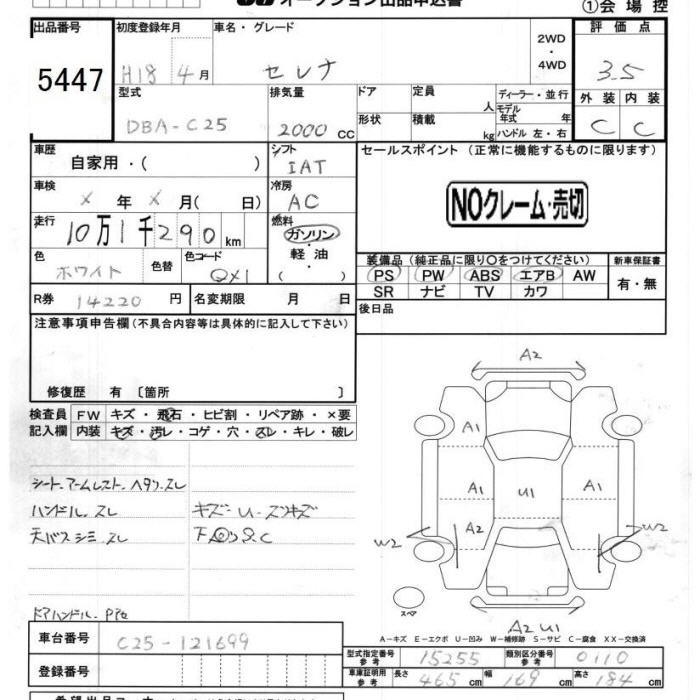 オークション出品申込書
①会場控
出品番号 初度登録年月 車名・グレード 2WD・4WD 評価点
5447 H18年4月 セレナ 3.5
型式 排気量 ドア 定員 人 ディーラー・並行 外装 内装
DBA-C25 2000cc 形状 積載 kg モデル年式 年 ハンドル 左・右 C C
車歴 自家用・( ) シフト IAT セールスポイント(正常に機能するものに限ります)
車検 X年X月( 日) 冷房 AC NOクレーム・売切
走行 10万1千290km 燃料 ガソリン・軽油・( )
色 ホワイト 色替 色コード QX1
装備品(純正品に限り○をつけてください) 新車保証書
PS PW ABS エアB AW 有・無
SR ナビ TV カワ
R券 14220円 名変期限 月 日 後日品
注意事項申告欄(不具合内容等は具体的に記入して下さい)
修復歴 有〔箇所 〕
検査員 FW キズ・飛石・ヒビ割・リペア跡・×要
記入欄 内装 キズ・汚レ・コゲ・穴・スレ・キレ・破レ
A2
A1
A1 U1 A1
A2
W2 W2
シート.アームレスト.ヘタリ.スレ
ハンドル.スレ キズ-U-スリキズ
天バスシミ.スレ 下回りS.C
ドアハンドル.
スペア
A2 U1
A-キズ E-エクボ U-凹み W-補修跡 S-サビ C-腐食 XX-交換済
車台番号 C25-121699
型式指定番号 参考 15255 類別区分番号 参考 0110
登録番号 車庫証明用 参考 長さ 465cm 幅 169cm 高さ 184cm